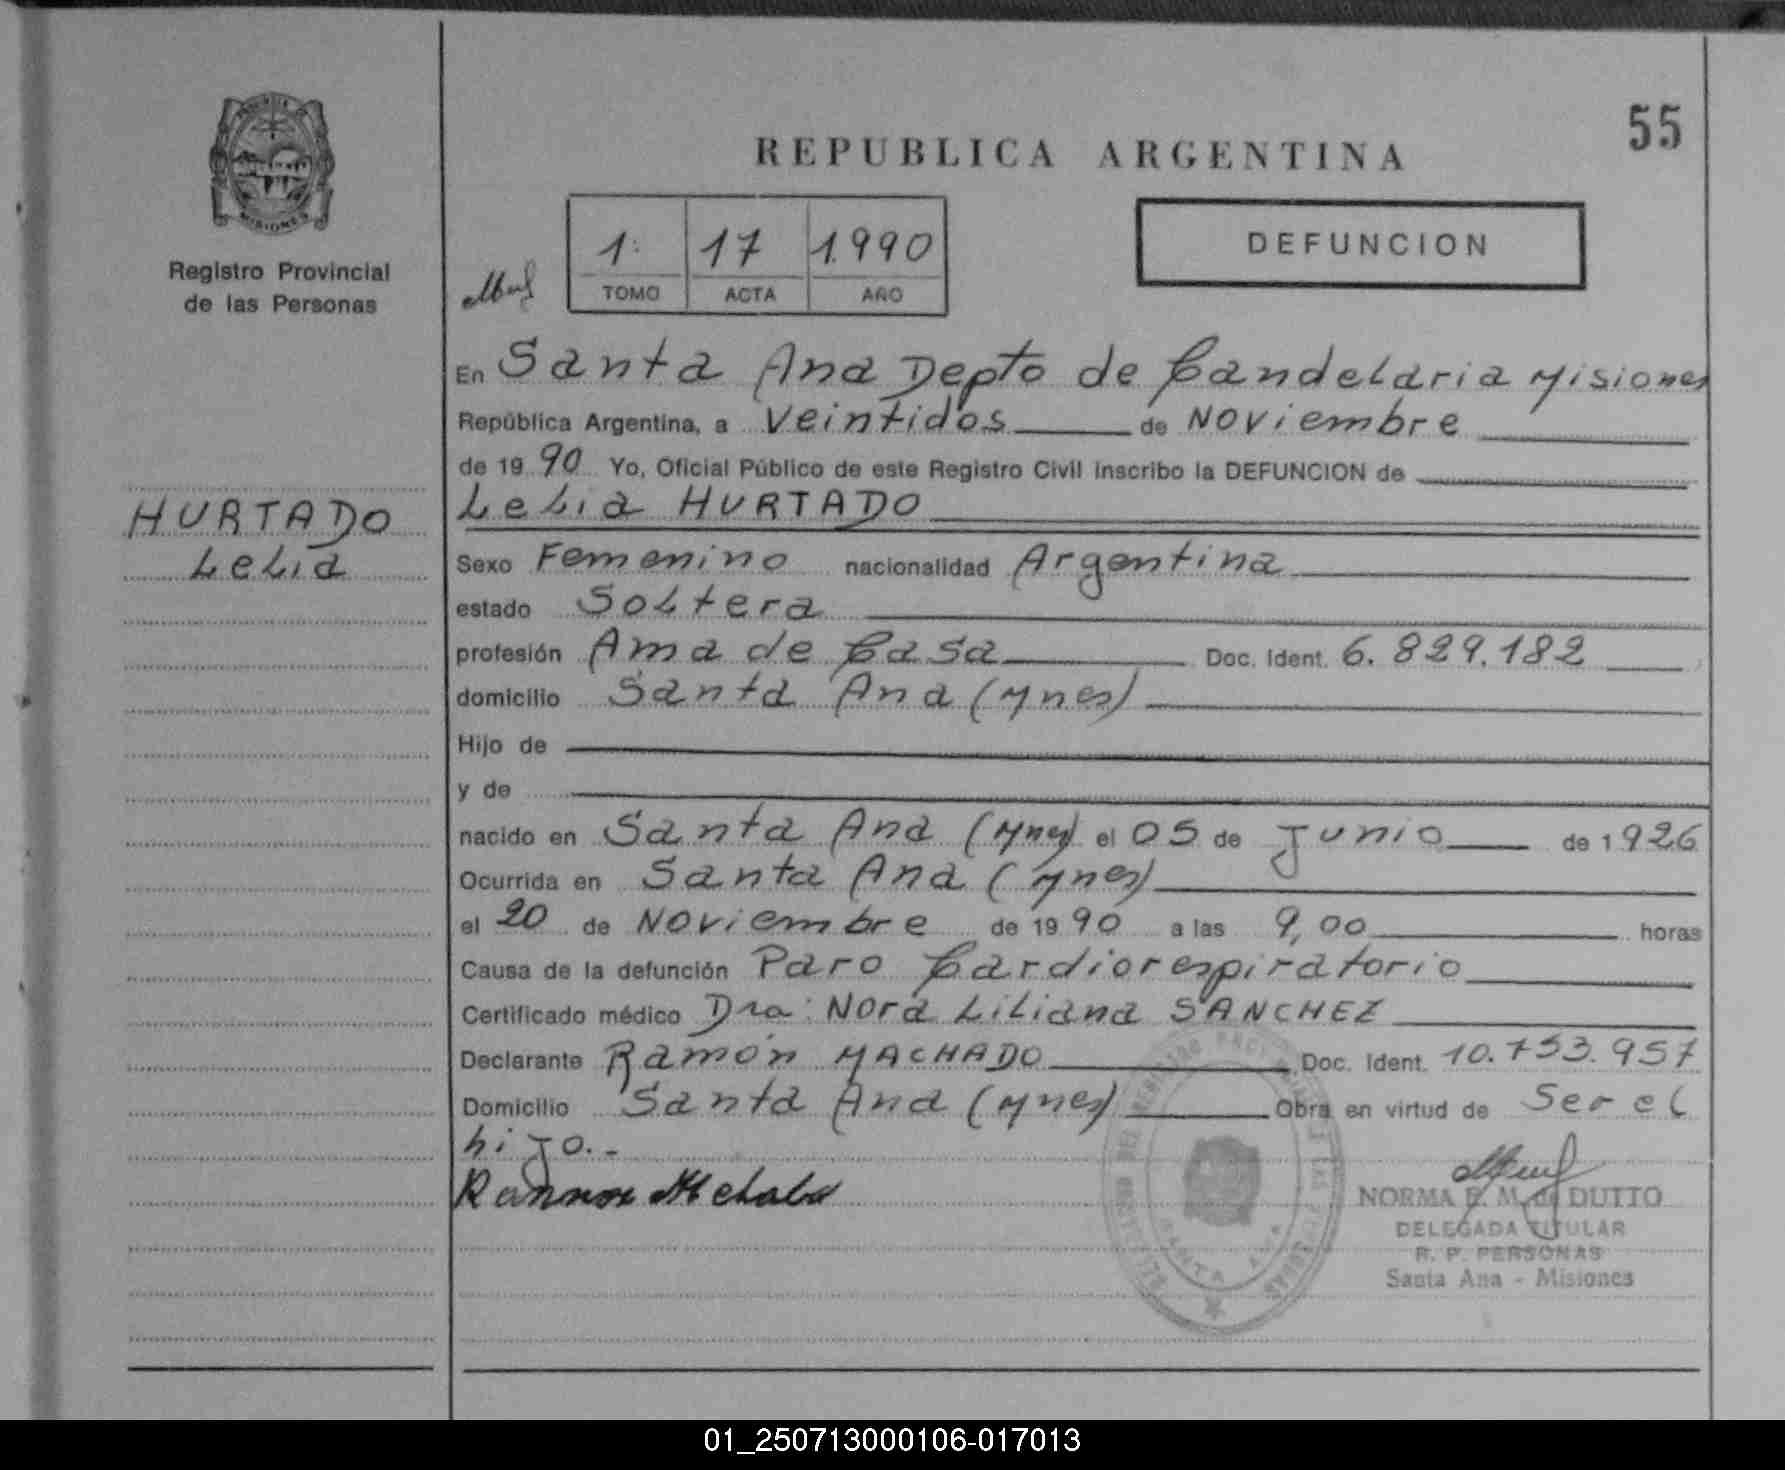 55
REPUBLICA ARGENTINA
MISIONES
Registro Provincial
de las Personas
1: 17 1.990
TOMO ACTA AÑO
DEFUNCION
HURTADO
Lelia
En Santa Ana Depto de Candelaria Misiones
República Argentina, a Veintidós de Noviembre
de 1990 Yo, Oficial Público de este Registro Civil inscribo la DEFUNCION de
Lelia HURTADO
Sexo Femenino nacionalidad Argentina
estado Soltera
profesión Ama de Casa Doc. Ident. 6.829.182
domicilio Santa Ana (Mnes)
Hijo de
y de
nacido en Santa Ana (Mnes) el 05 de Junio de 1926
Ocurrida en Santa Ana (Mnes)
el 20 de Noviembre de 1990 a las 9,00 horas
Causa de la defunción Paro Cardiorespiratorio
Certificado médico Dra: Nora Liliana SANCHEZ
Declarante Ramón MACHADO Doc. Ident. 10.753.957
Domicilio Santa Ana (Mnes) Obra en virtud de Ser el
hijo.-
NORMA E. M. de DUTTO
DELEGADA TITULAR
R. P. PERSONAS
Santa Ana - Misiones
SANTA ANA
01_250713000106-017013